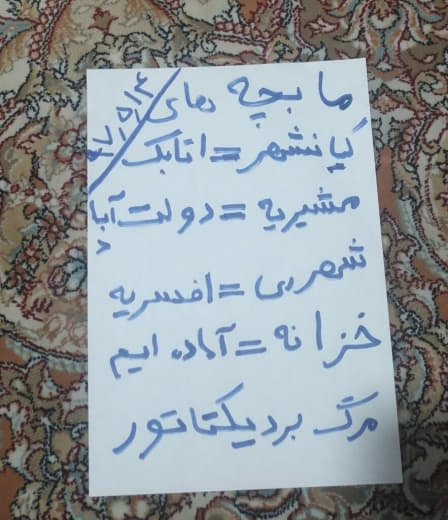 ما بچه های
کیانشهر = اتابک
مشیریه = دولت آباد
شهرری = افسریه
خزانه = آماده ایم
مرگ بر دیکتاتور